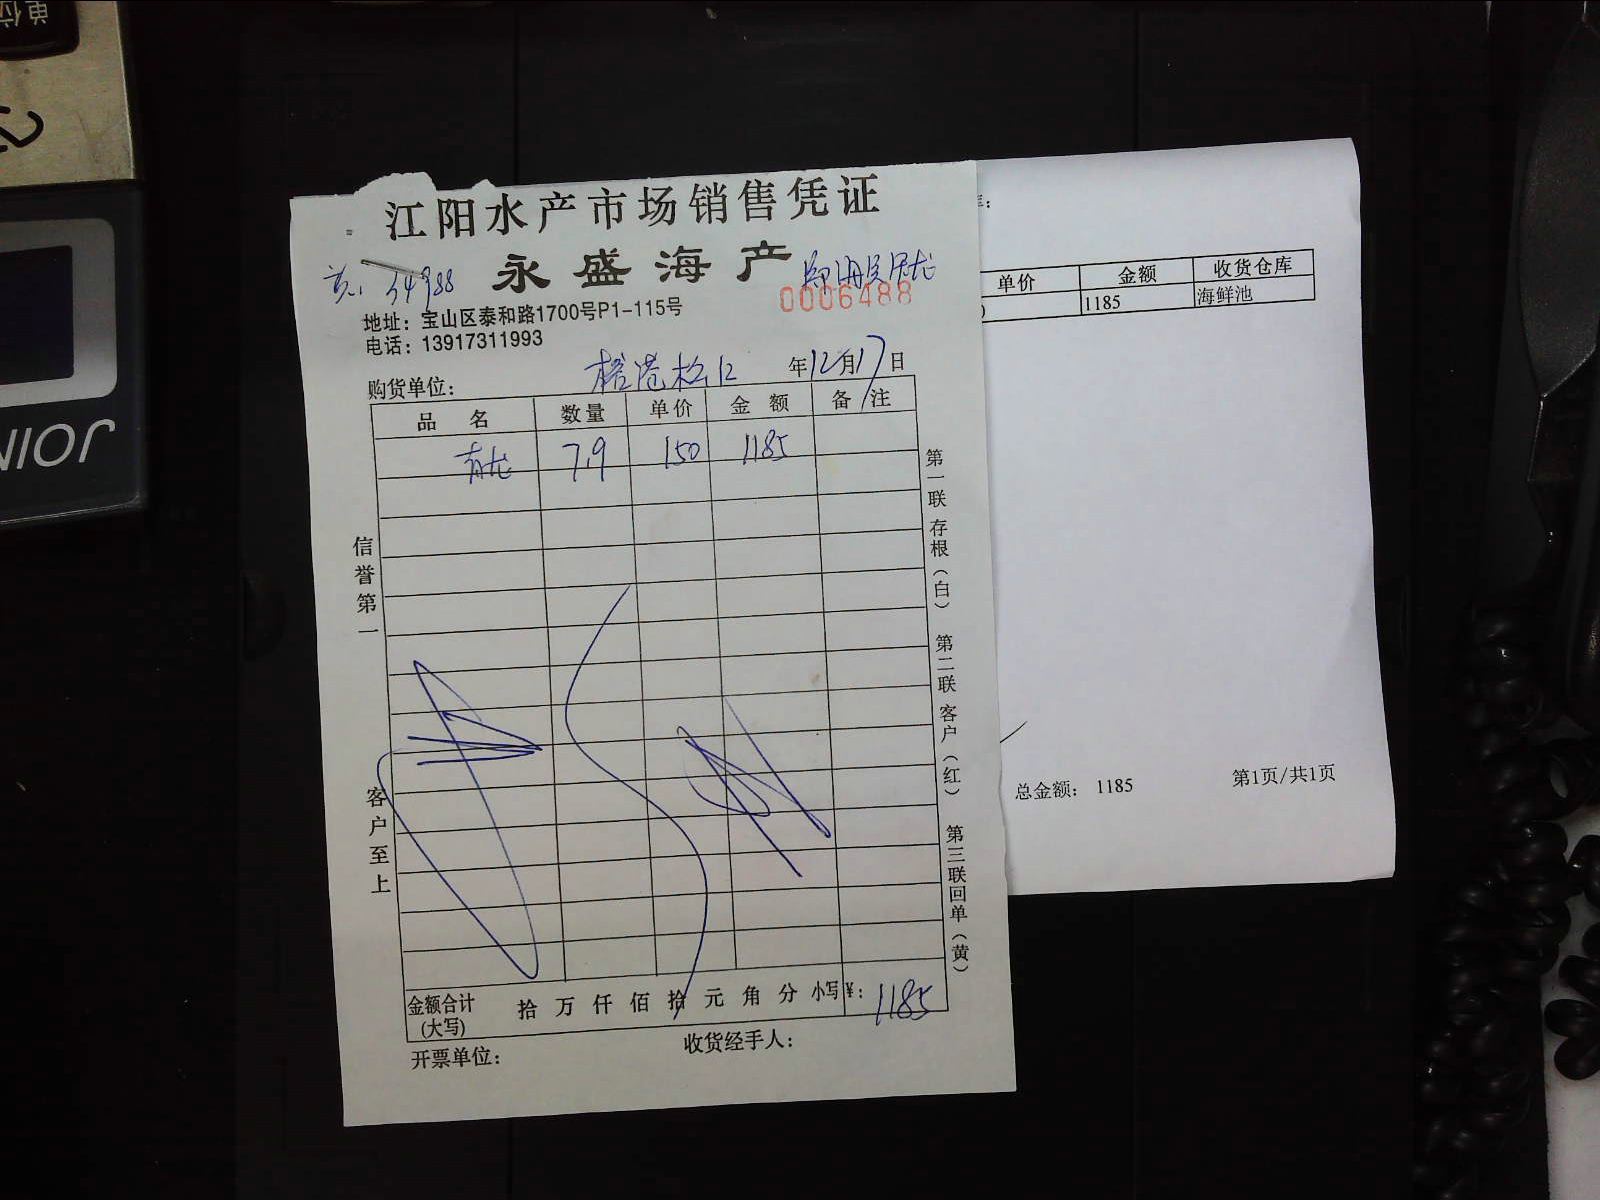 单位
JOIN
江阳水产市场销售凭证
永盛海产
34988
0006488
地址：宝山区泰和路1700号P1-115号
电话：13917311993
购货单位：
年12月17日
品 名 数量 单价 金 额 备 注
青龙 7.9 150 1185
信誉第一
客户至上
第一联 存根（白） 第二联 客户（红） 第三联 回单（黄）
金额合计(大写) 拾 万 仟 佰 拾 元 角 分 小写￥：1185
开票单位：
收货经手人：
单价 金额 收货仓库
1185 海鲜池
总金额： 1185 第1页/共1页